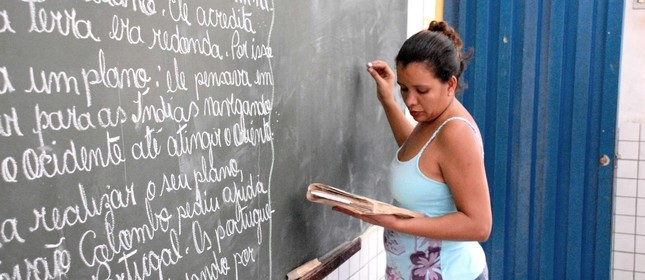 Ele acredita
a terra era redonda. Por isso
a um plano: ele pensava em
ar para as Índias navegando
o ocidente até atingir o oriente.
a realizar o seu plano,
vão Colombo pediu ajuda
Portugal. Os portugue-
por